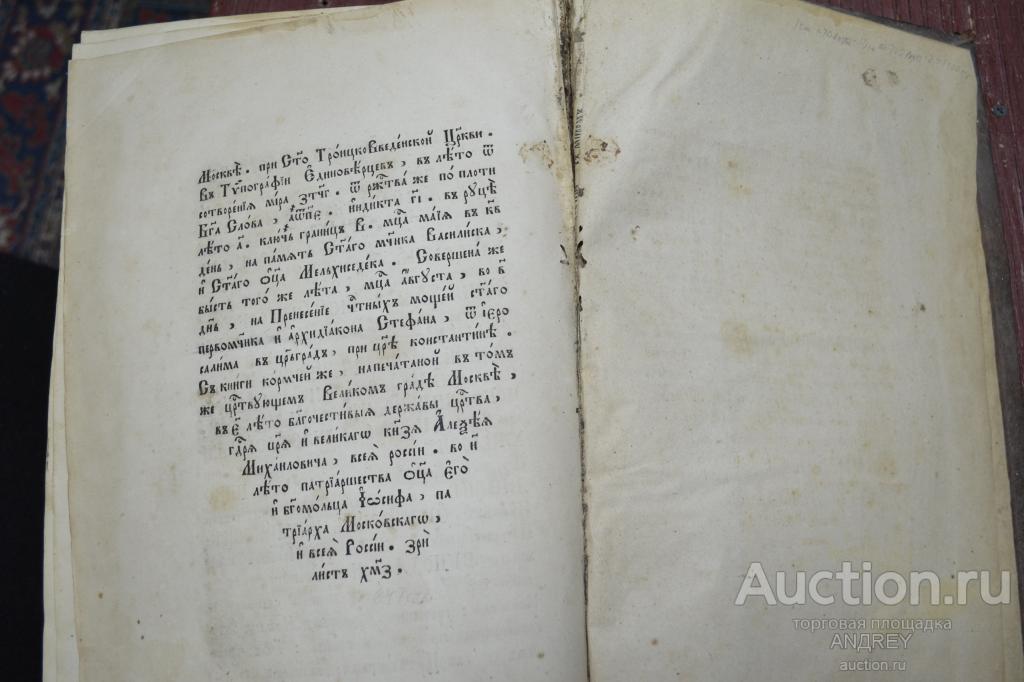 Москвѣ. при Ст҃о Трои́цко Введе́нской Цр҃кви.
Въ Тѷпогра́фїи Е҆диновѣ́рцевъ, въ лѣ́то ѿ
сотворе́нїѧ мі́ра ҂зтч҃г. ѿ рж҃тва́ же по пло́ти
Бг҃а Сло́ва, ҂аѡп҃е. і҆нди́кта г҃і. въ руцѣ̀
лѣ́то а҃. клю́чь грани́цъ В҃. мц҃а ма́їѧ въ к҃в
де́нь, на па́мѧть Ст҃а́го мч҃ика Васили́ска,
и҆ Ст҃а́го ѻ҆ц҃а̀ Мельхиседе́ка. Соверше́на же
бы́сть того́ же лѣ́та, мц҃а а҆́ѵгуста, во в҃
дн҃ь, на Пренесе́нїе чт҃ны́хъ моще́й ст҃а́го
первомч҃ика и҆ а҆рхидїа́кона Стефа́на, ѿ і҆еро
сали́ма въ цр҃ьгра́дъ, при цр҃ѣ̀ константи́нѣ.
Съ кни́ги ко́рмчей же, напеча́таной въ то́мъ
же цр҃твующемъ Вели́комъ гра́дѣ Москвѣ̀,
въ е҃ лѣ́то бл҃гочести́выѧ держа́вы цр҃тва,
гд҃рѧ цр҃ѧ̀ и҆ вели́кагѡ кн҃зѧ А҆леѯѣ́ѧ
Миха́иловича, всеѧ̀ россі́и. во и҃
лѣ́то патрїа́ршества ѻ҆ц҃а̀ є҆гѡ̀
и҆ бг҃омо́льца І҆ѡ́сифа, па
трїа́рха Моско́вскагѡ,
и҆ всеѧ̀ Россі́и. зрѝ
ли́стъ хм҃з.
Auction.ru
торговая площадка
ANDREY
auction.ru